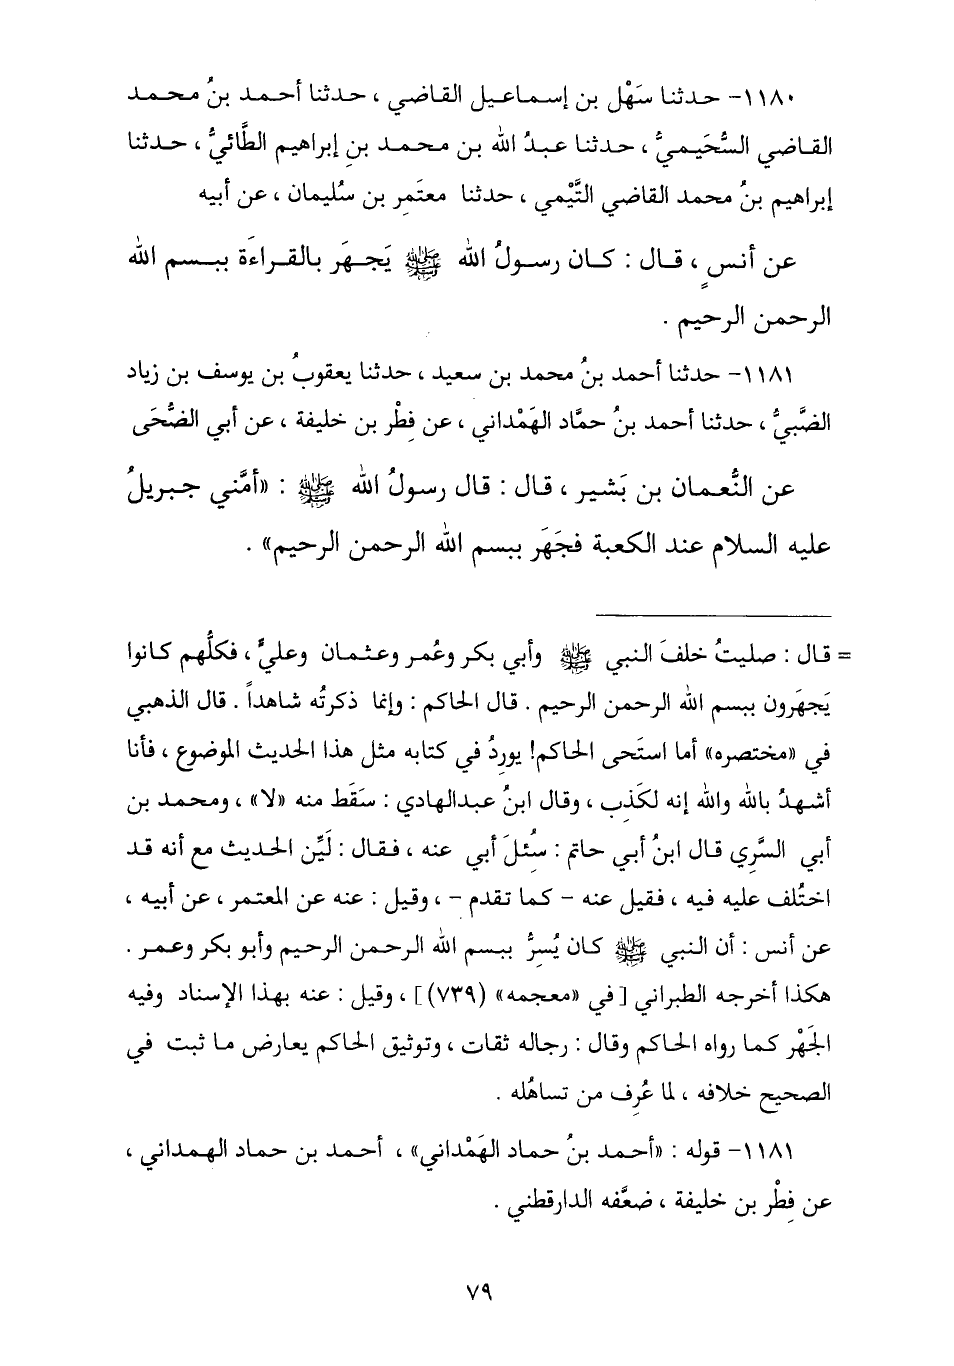 ١١٨٠- حدثنا سَهْل بن إسماعيل القاضي ، حدثنا أحمد بنُ محمد
القاضي السُّحَيميُّ ، حدثنا عبدُ الله بن محمد بنِ إبراهيم الطَّائيُّ ، حدثنا
إبراهيم بنُ محمد القاضي التَّيْمي ، حدثنا معتَمِر بن سُليمان ، عن أبيه
عن أنسٍ ، قال : كان رسولُ الله ﷺ يَجهَر بالقراءَة ببسم الله
الرحمن الرحيم .
١١٨١- حدثنا أحمد بنُ محمد بن سعيد ، حدثنا يعقوبُ بن يوسف بن زياد
الضَّبيُّ ، حدثنا أحمد بنُ حمَّاد الهَمْداني ، عن فِطْر بن خليفة ، عن أبي الضُّحَى
عن النُّعمان بن بَشير ، قال : قال رسولُ الله ﷺ : «أمَّني جبريلُ
عليه السلام عند الكعبة فجَهَر ببسم الله الرحمن الرحيم» .
= قال : صليتُ خلفَ النبي ﷺ وأبي بكر وعُمر وعثمان وعليٍّ ، فكلُّهم كانوا
يَجهَرون ببسم الله الرحمن الرحيم . قال الحاكم : وإنما ذكرتُه شاهداً . قال الذهبي
في «مختصره» أما استَحى الحاكم! يوردُ في كتابه مثل هذا الحديث الموضوع ، فأنا
أشهدُ بالله والله إنه لكَذِب ، وقال ابنُ عبدالهادي : سَقَط منه «لا» ، ومحمد بن
أبي السَّرِي قال ابنُ أبي حاتم : سُئِلَ أبي عنه ، فقال : لَيِّن الحديث مع أنه قد
اختُلف عليه فيه ، فقيل عنه - كما تقدم - ، وقيل : عنه عن المعتمر ، عن أبيه ،
عن أنس : أن النبي ﷺ كان يُسِرُّ ببسم الله الرحمن الرحيم وأبو بكر وعمر .
هكذا أخرجه الطبراني [في «معجمه» (٧٣٩)] ، وقيل : عنه بهذا الإسناد وفيه
الجَهْر كما رواه الحاكم وقال : رجاله ثقات ، وتوثيق الحاكم يعارض ما ثبت في
الصحيح خلافه ، لما عُرِف من تساهُله .
١١٨١- قوله : «أحمد بنُ حماد الهَمْداني» ، أحمد بن حماد الهمداني ،
عن فِطْر بن خليفة ، ضعَّفه الدارقطني .
٧٩